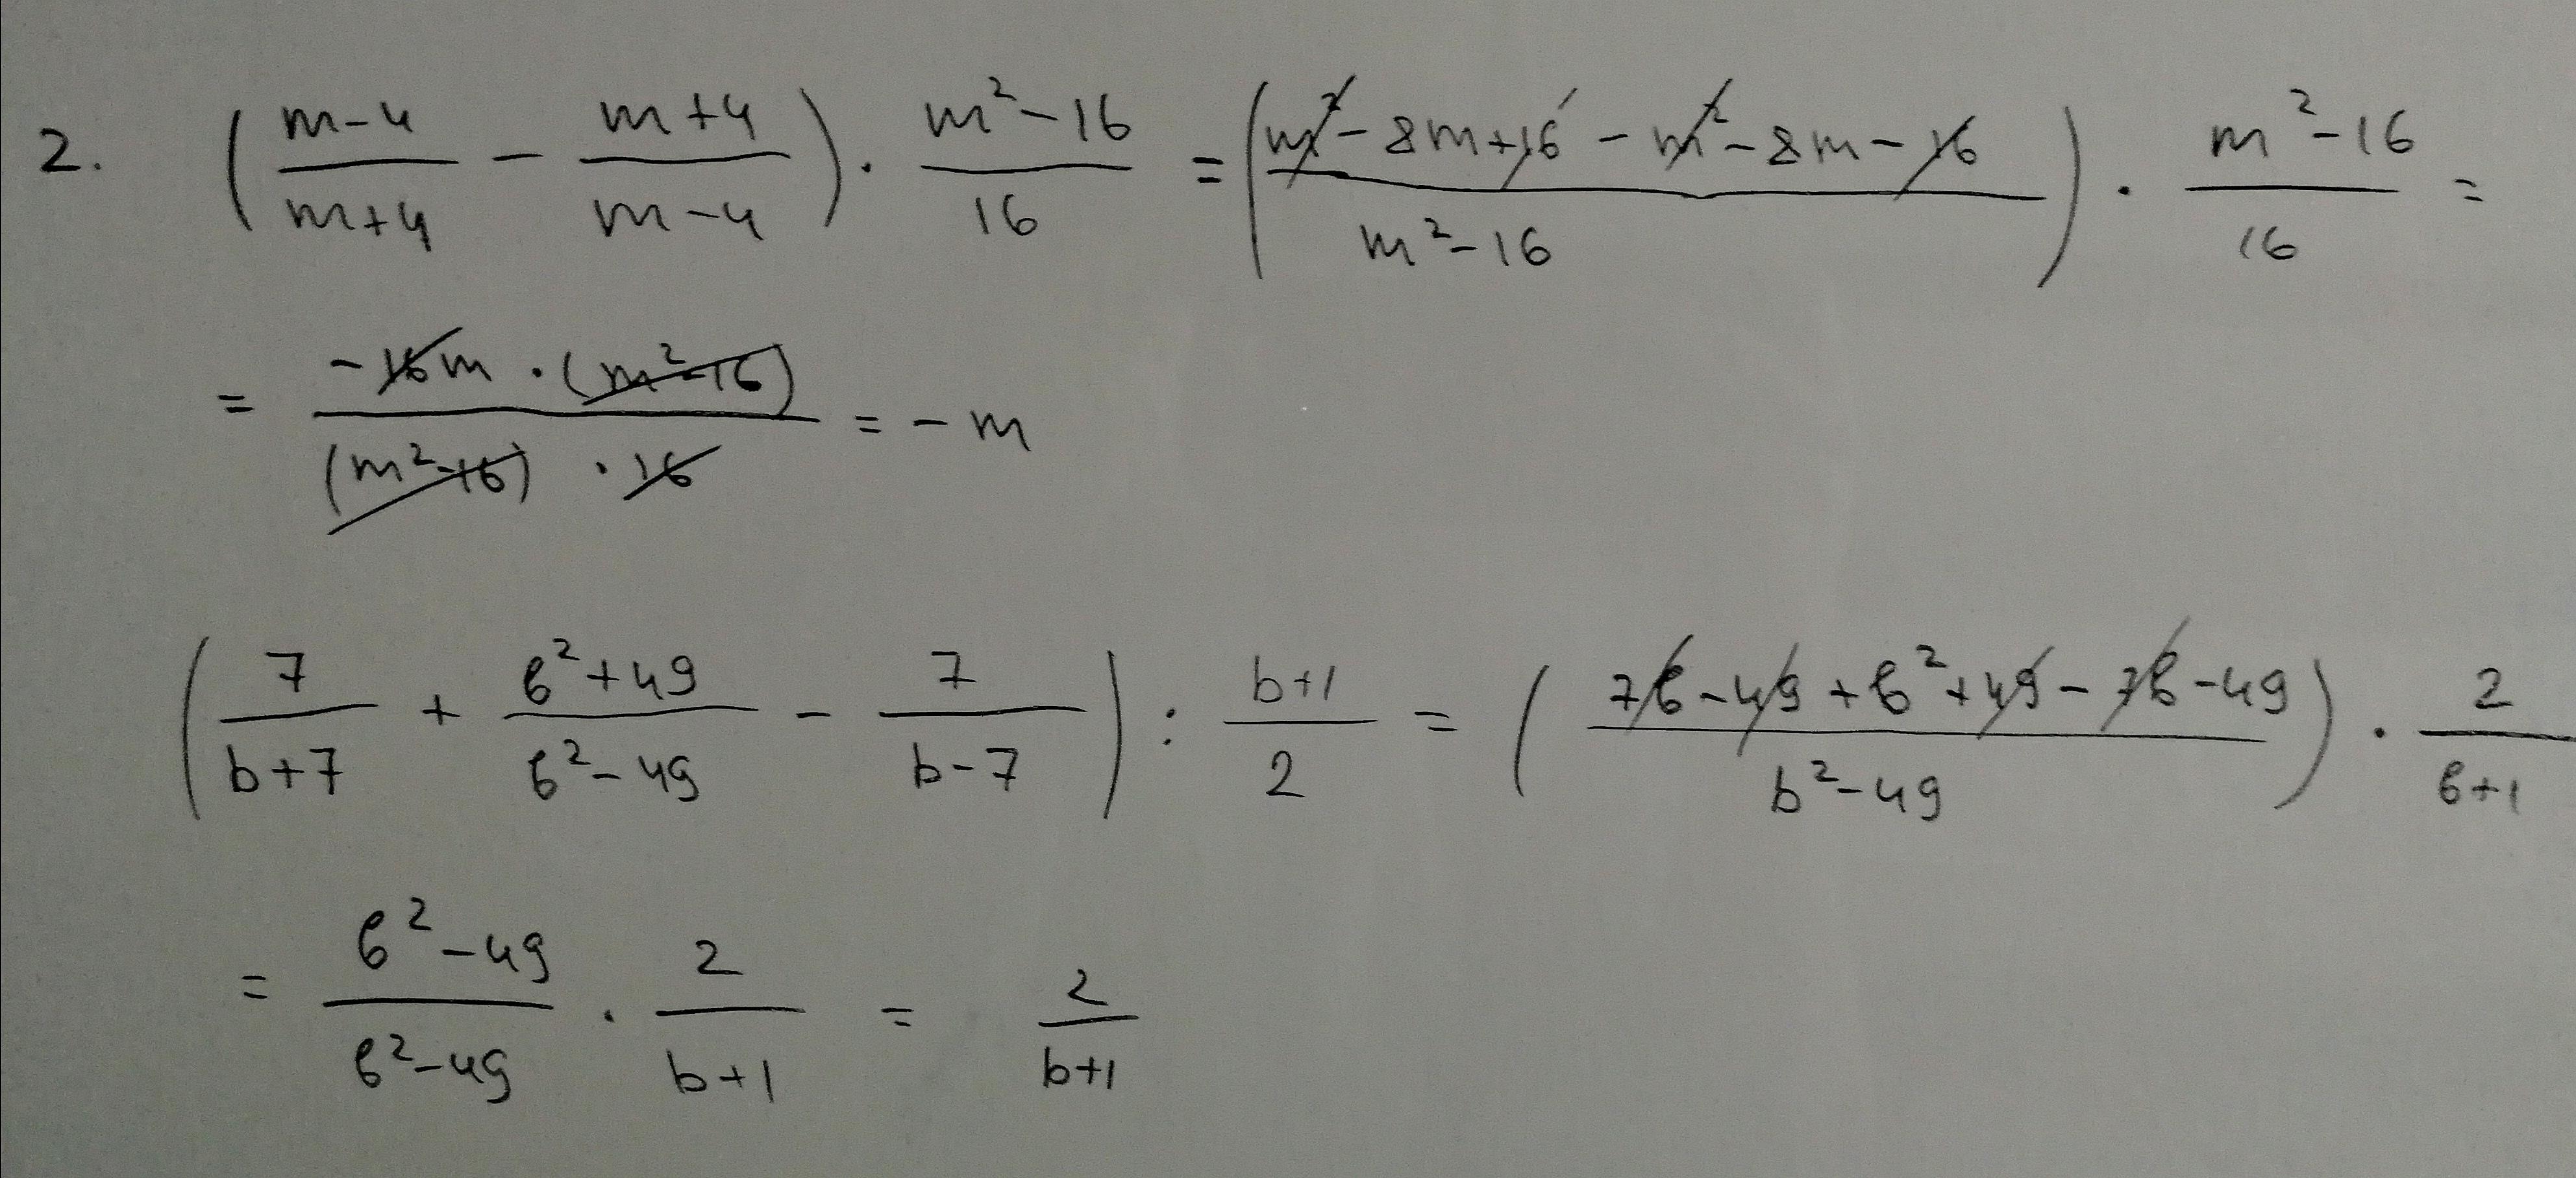 2. ( (m-4)/(m+4) - (m+4)/(m-4) ) · (m²-16)/16 = ( (m²-8m+16-m²-8m-16)/(m²-16) ) · (m²-16)/16 =
= (-16m·(m²-16))/((m²-16)·16) = -m
( 7/(b+7) + (b²+49)/(b²-49) - 7/(b-7) ) : (b+1)/2 = ( (7b-49+b²+49-7b-49)/(b²-49) ) · 2/(b+1)
= (b²-49)/(b²-49) · 2/(b+1) = 2/(b+1)